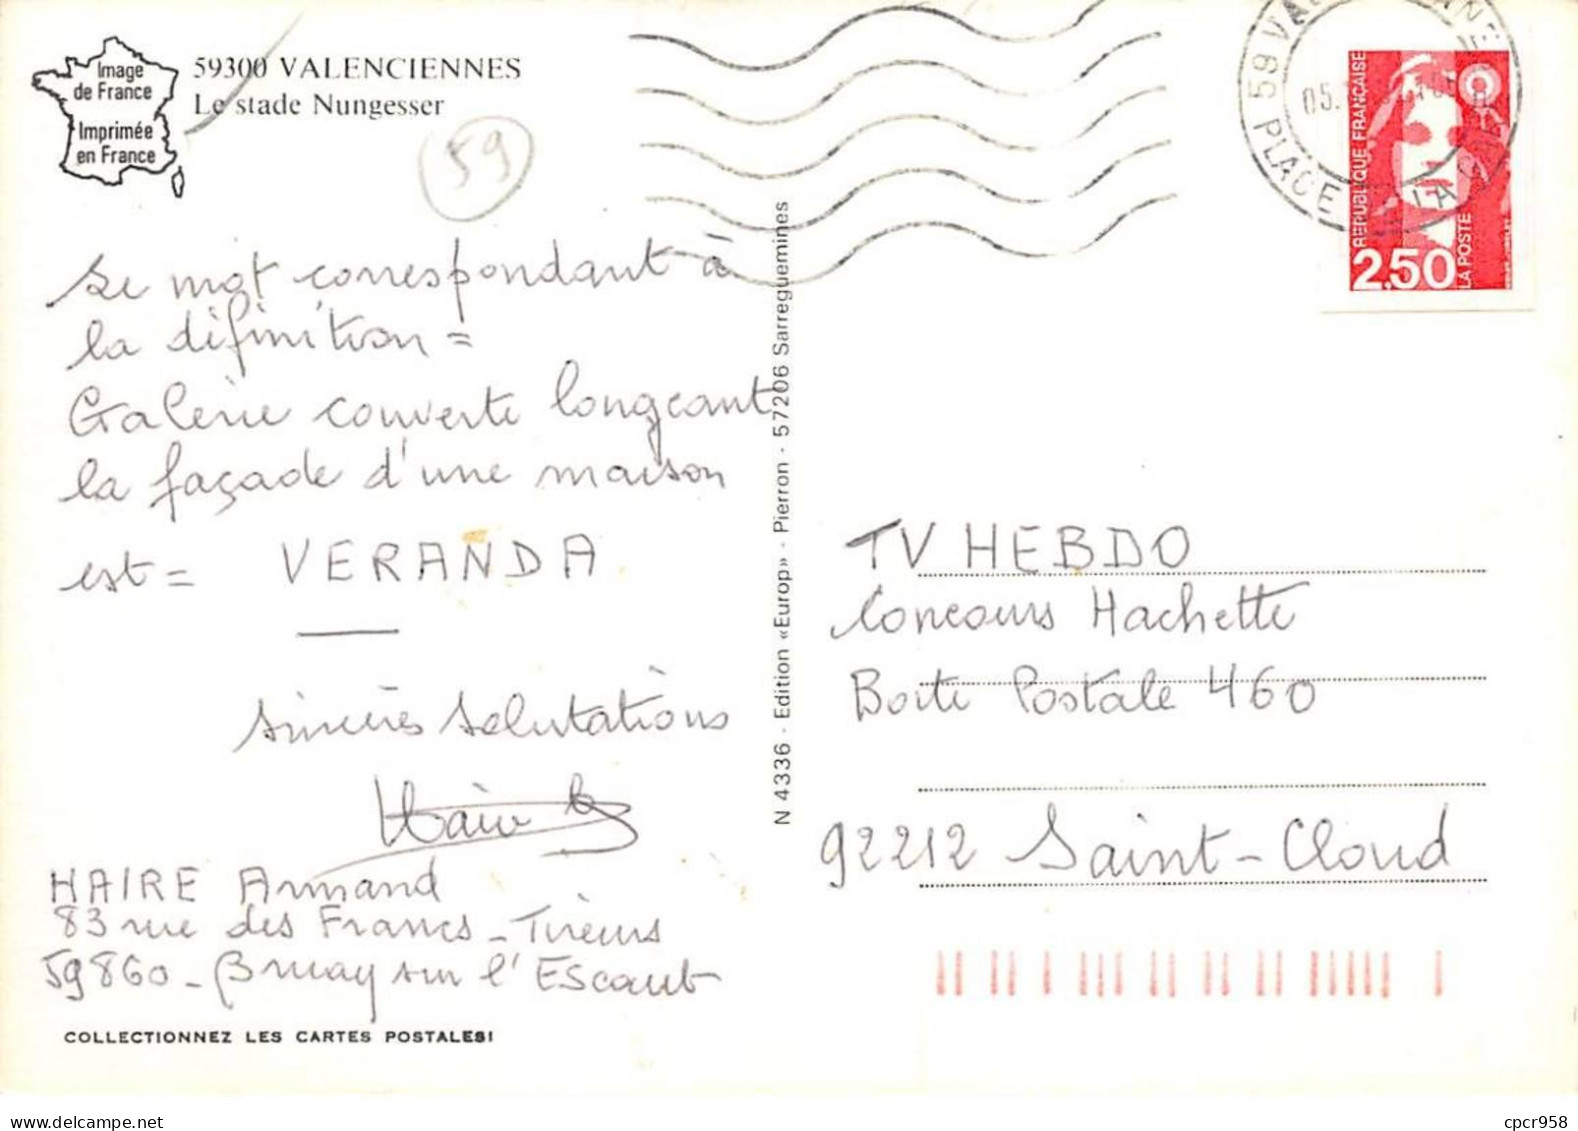 Image
de France
Imprimée
en France
59300 VALENCIENNES
Le stade Nungesser
59
Le mot correspondant à
la définition =
Galerie couverte longeant
la façade d'une maison
est = VERANDA
sincères salutations
HAIRE Armand
83 rue des Francs-Tireurs
59860 - Bruay sur l'Escaut
COLLECTIONNEZ LES CARTES POSTALES!
N 4336 - Edition «Europ» - Pierron - 57206 Sarreguemines
59 VA
PLACE
05.
REPUBLIQUE FRANÇAISE
2,50
LA POSTE
TV HEBDO
Concours Hachette
Boite Postale 460
92212 Saint-Cloud
cpcr958